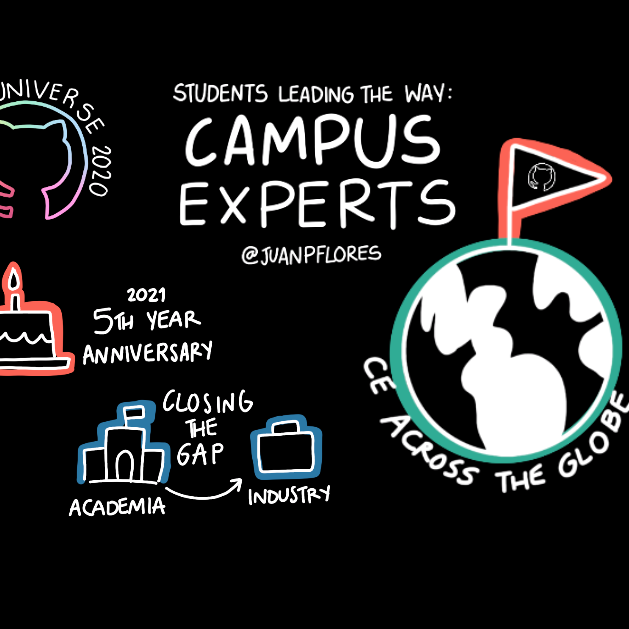 UNIVERSE 2020
STUDENTS LEADING THE WAY:
CAMPUS
EXPERTS
@JUANPFLORES
2021
5TH YEAR
ANNIVERSARY
CLOSING
THE
GAP
ACADEMIA
INDUSTRY
CE ACROSS THE GLOBE